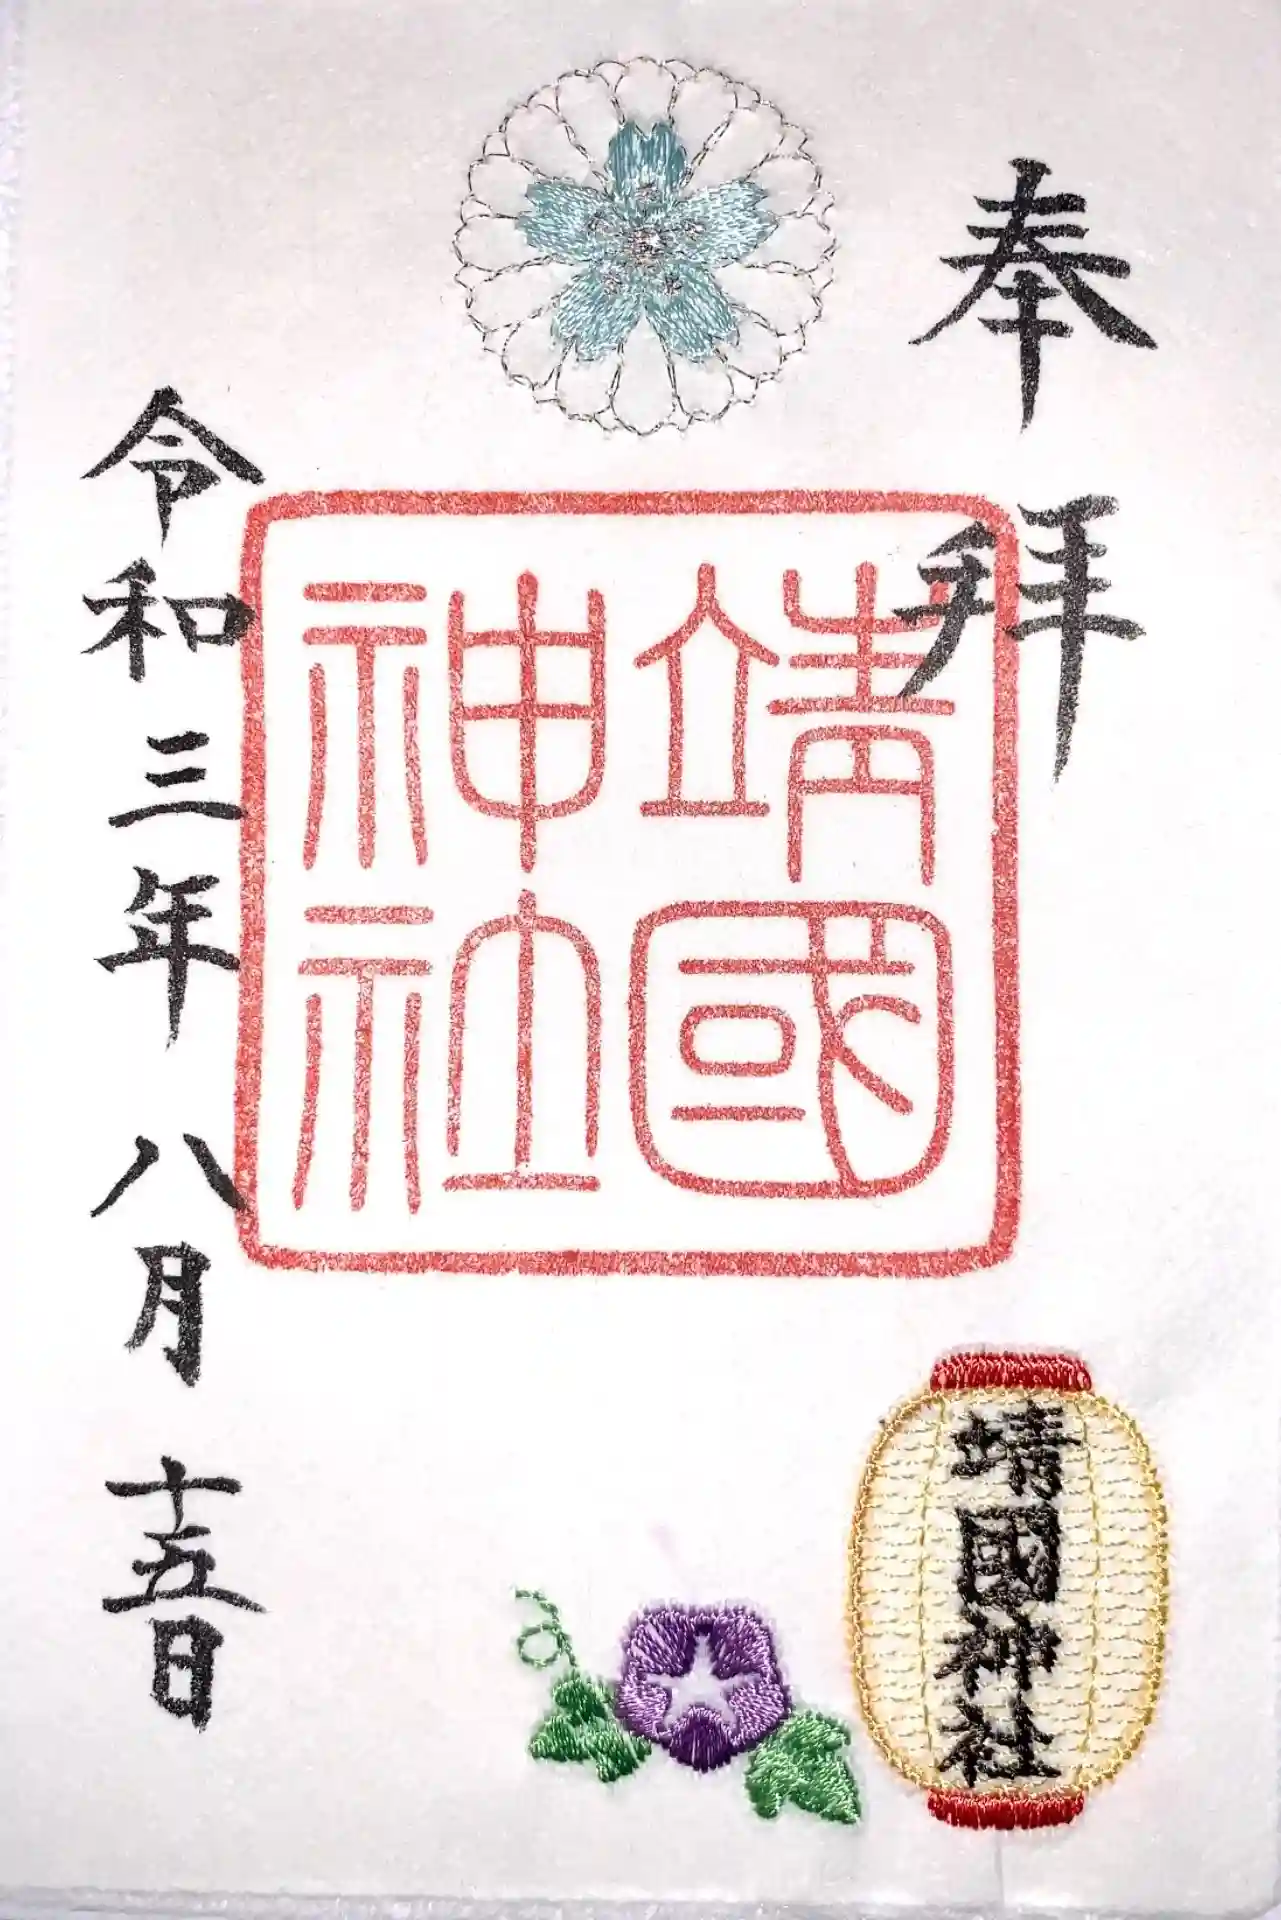 奉拝
靖國
神社
令和三年八月十五日
靖國神社